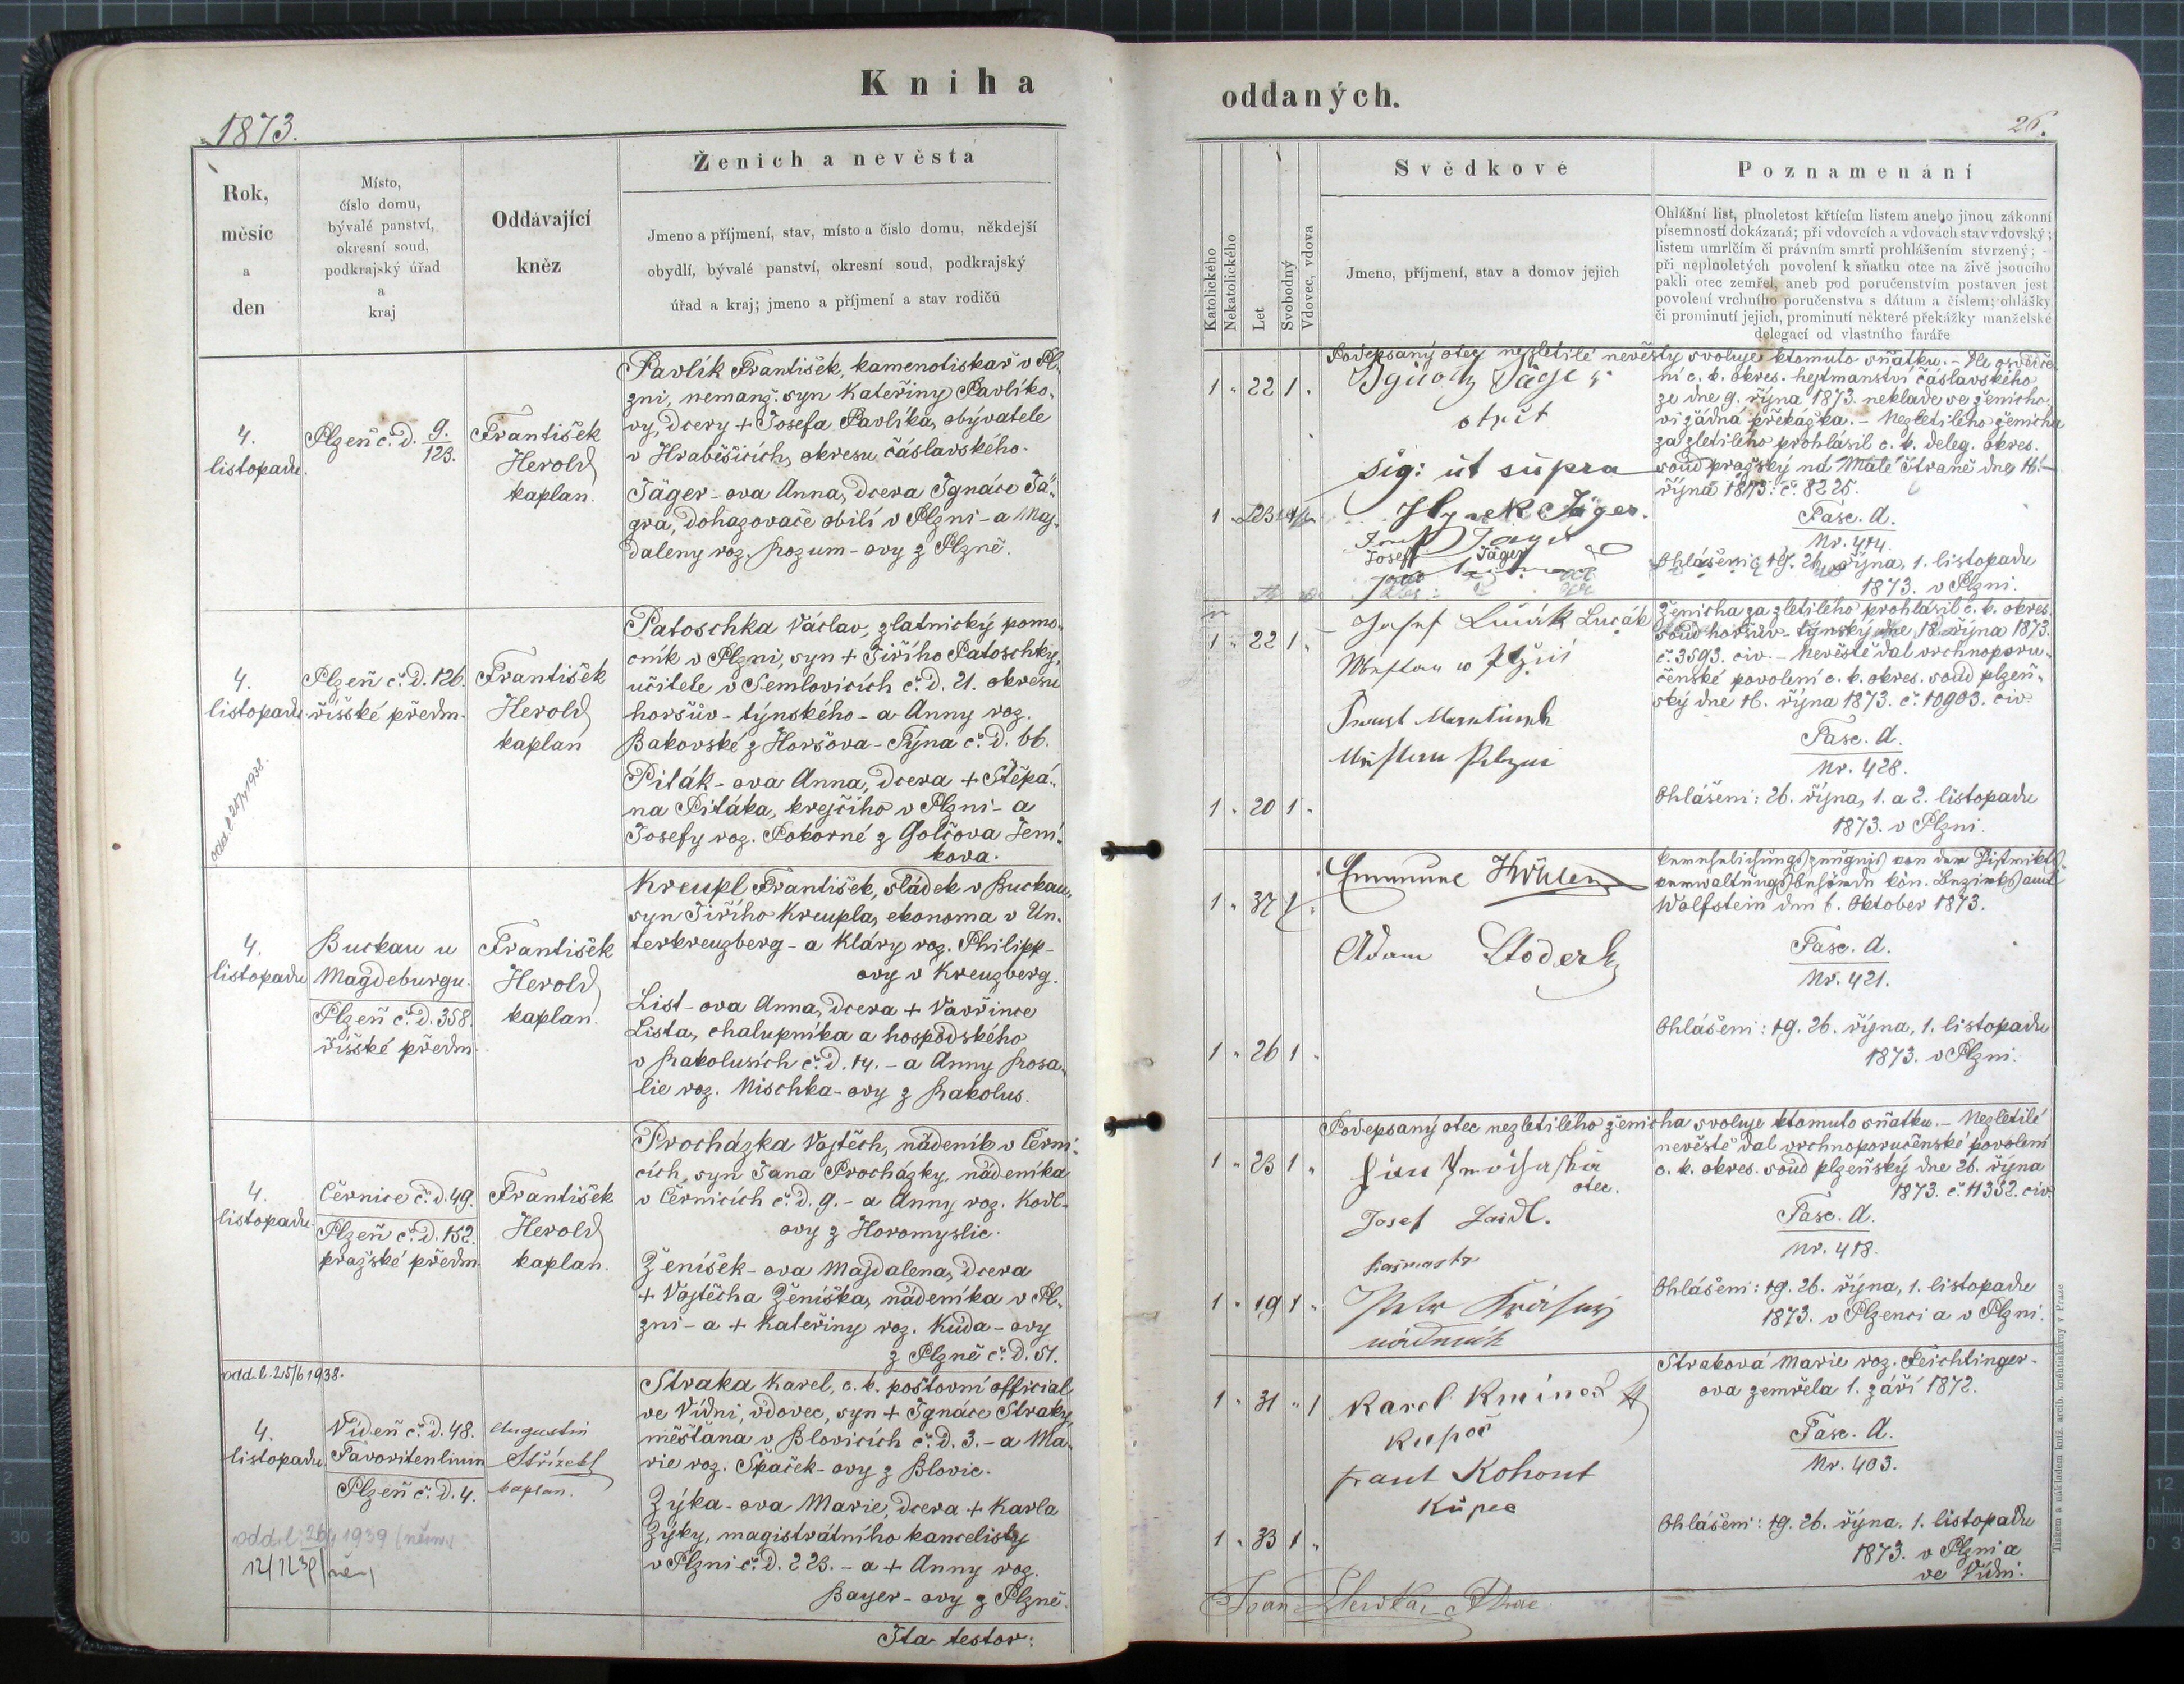 Kniha
oddaných.
1873.
26.
Rok,
měsíc
a
den
Místo,
číslo domu,
bývalé panství,
okresní soud,
podkrajský úřad
a
kraj
Oddávající
kněz
Ženich a nevěsta
Jmeno a příjmení, stav, místo a číslo domu, někdejší
obydlí, bývalé panství, okresní soud, podkrajský
úřad a kraj; jmeno a příjmení a stav rodičů
Katolického
Nekatolického
Let
Svobodný
Vdovec, vdova
Svědkové
Jmeno, příjmení, stav a domov jejich
Poznamenání
Ohlášní list, plnoletost křtícím listem anebo jinou zákonní
písemností dokázaná; při vdovcích a vdovách stav vdovský;
listem umrlčím či právním smrti prohlášením stvrzený;
při neplnoletých povolení k sňatku otce na živě jsoucího
pakli otec zemřel, aneb pod poručenstvím postaven jest
povolení vrchního poručenstva s dátum a číslem; ohlášky
či prominutí jejich, prominutí některé překážky manželské
delegací od vlastního faráře
4.
listopadu.
Plzeň č. d. 9./123.
František
Herold
kaplan.
Pavlík František, kamenotiskař v Pl-
zni, nemanž. syn Kateřiny Pavlíko-
vy, dcery + Josefa Pavlíka, obývatele
v Hraběšicích, okresu čáslavského.
Jäger-ova Anna, dcera Ignáce Jä-
gra, dohazovače obilí v Plzni - a Maj-
daleny roz. Rozum-ovy z Plzně.
1 " 22 1 "
1 " 23
Podepsaný otec nezletilé nevěsty svoluje ktomuto sňatku. - Dle osvědče-
ní c. k. okres. hejtmanství čáslavského
ze dne 9. října 1873. neklade se ženicho-
vi žádná překážka. - Nezletilého ženicha
za zletilého prohlásil c. k. deleg. okres.
soud pražský na Malé Straně dne 16.
října 1873: č. 8225.
Fasc. A.
Nr. 414.
Ohlášeni: 19. 26. října, 1. listopadu
1873. v Plzni.
sig: ut supra
Hynek Jäger.
Josef Jäger
4.
listopadu
Plzeň č. d. 126.
říšské předm.
František
Herold
kaplan
Patoschka Václav, zlatnický pomo-
cník v Plzni, syn + Jiřího Patoschky,
učitele v Semlovicích č. d. 21. okresu
horšův-týnského - a Anny roz.
Bakovské z Horšova-Týna č. d. 66.
Piták-ova Anna, dcera + Štěpá-
na Pitáka, krejčího v Plzni - a
Josefy roz. Pokorné z Golčova Jení-
kova.
1 " 22 1 "
1 " 20 1 "
Josef Lucák Lucák
Ženicha za zletilého prohlásil c. k. okres.
soud horšův-týnský dne 18. října 1873.
č. 3593. civ. - Nevěstě dal vrchnoporu-
čenské povolení c. k. okres. soud plzeň-
ský dne 16. října 1873. č. 10903. civ.
Fasc. A.
Nr. 428.
Ohlášeni: 26. října, 1. a 2. listopadu
1873. v Plzni.
4.
listopadu
Buckau u
Magdeburgu.
Plzeň č. d. 358.
říšské předm.
František
Herold
kaplan.
Kreupl František, sládek v Buckau,
syn Jiřího Kreupla, ekonoma v Un-
terkreuzberg - a Kláry roz. Philipp-
ovy v Kreuzberg.
List-ova Anna, dcera + Vavřince
Lista, chalupníka a hospodského
v Rakolusích č. d. 14. - a Anny Rosa-
lie roz. Mischka-ovy z Rakolus.
1 " 37 1 "
1 " 26 1 "
Adam
Verehelichungszeugnis von der Distrikts-
verwaltungsbehörde kön. Bezirksamt
Wolfstein den 6. Oktober 1873.
Fasc. A.
Nr. 421.
Ohlášeni: 19. 26. října, 1. listopadu
1873. v Plzni.
4.
listopadu.
Černice č. d. 49.
Plzeň č. d. 152.
pražské předm.
František
Herold
kaplan.
Procházka Vojtěch, nádeník v Černi-
cích, syn Jana Procházky, nádeníka
v Černicích č. d. 9. - a Anny roz. Kodl-
ovy z Horomyslic.
Ženíšek-ova Majdalena, dcera
+ Vojtěcha Ženíška, nádeníka v Pl-
zni - a + Kateřiny roz. Kuda-ovy
z Plzně č. d. 51.
1 " 23 1 "
1 " 19 1 "
Podepsaný otec nezletilého ženicha svoluje ktomuto sňatku. - Nezletilé
nevěstě dal vrchnoporučenské povolení
c. k. okres. soud plzeňský dne 26. října
1873. č. 11352. civ.
Fasc. A.
Nr. 418.
Ohlášeni: 19. 26. října, 1. listopadu
1873. v Plzenci a v Plzni.
otec.
Josef Zaidl.
nádeník
odd. l. 25/6 1938.
4.
listopadu.
Vídeň č. d. 48.
Favoritenlinin
Plzeň č. d. 4.
Augustin
Střízek
kaplan.
Straka Karel, c. k. poštovní official
ve Vídni, vdovec, syn + Ignáce Straky,
měšťana v Blovicích č. d. 3. - a Ma-
rie roz. Špaček-ovy z Blovic.
Zýka-ova Marie, dcera + Karla
Zýky, magistrátního kancelisty
v Plzni č. d. 223. - a + Anny roz.
Bayer-ovy z Plzně.
1 " 31 " 1
1 " 33 1 "
Karel
Kupec
Frant Kohout
Kupec
Straková Marie roz. Feichtinger-
ova zemřela 1. září 1872.
Fasc. A.
Nr. 403.
Ohlášeni: 19. 26. října, 1. listopadu
1873. v Plzni a
ve Vídni.
Ita testor:
Tiskem a nákladem kníž. arcib. knihtiskárny v Praze